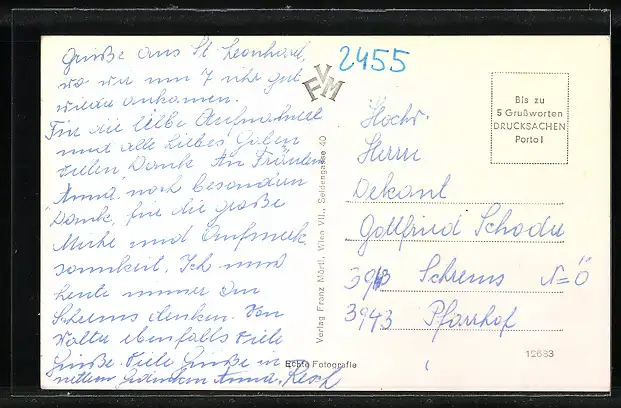 Grüße aus St. Leonhard,
wo wir um 7 Uhr gut
wieder ankamen.
Für die liebe Aufnahme
und alle Liebes Gaben
vielen Dank. An Fräulein
Anna noch besonderen
Dank, für die große
Mühe und Aufmerk
samkeit. Ich muß
heute immer an
Schrems denken. Von
Walter ebenfalls viele
Grüße. Viele Grüße in
nettem Gedenken Anna
2455
VFM
Bis zu
5 Grußworten
DRUCKSACHEN
Porto!
Hochw.
Herrn
Dekant
Gottfried Schadu
Schrems N=Ö
3943 Pfarrhof
Verlag Franz Mörtl, Wien VII., Seidengasse 40
Echte Fotografie
12683